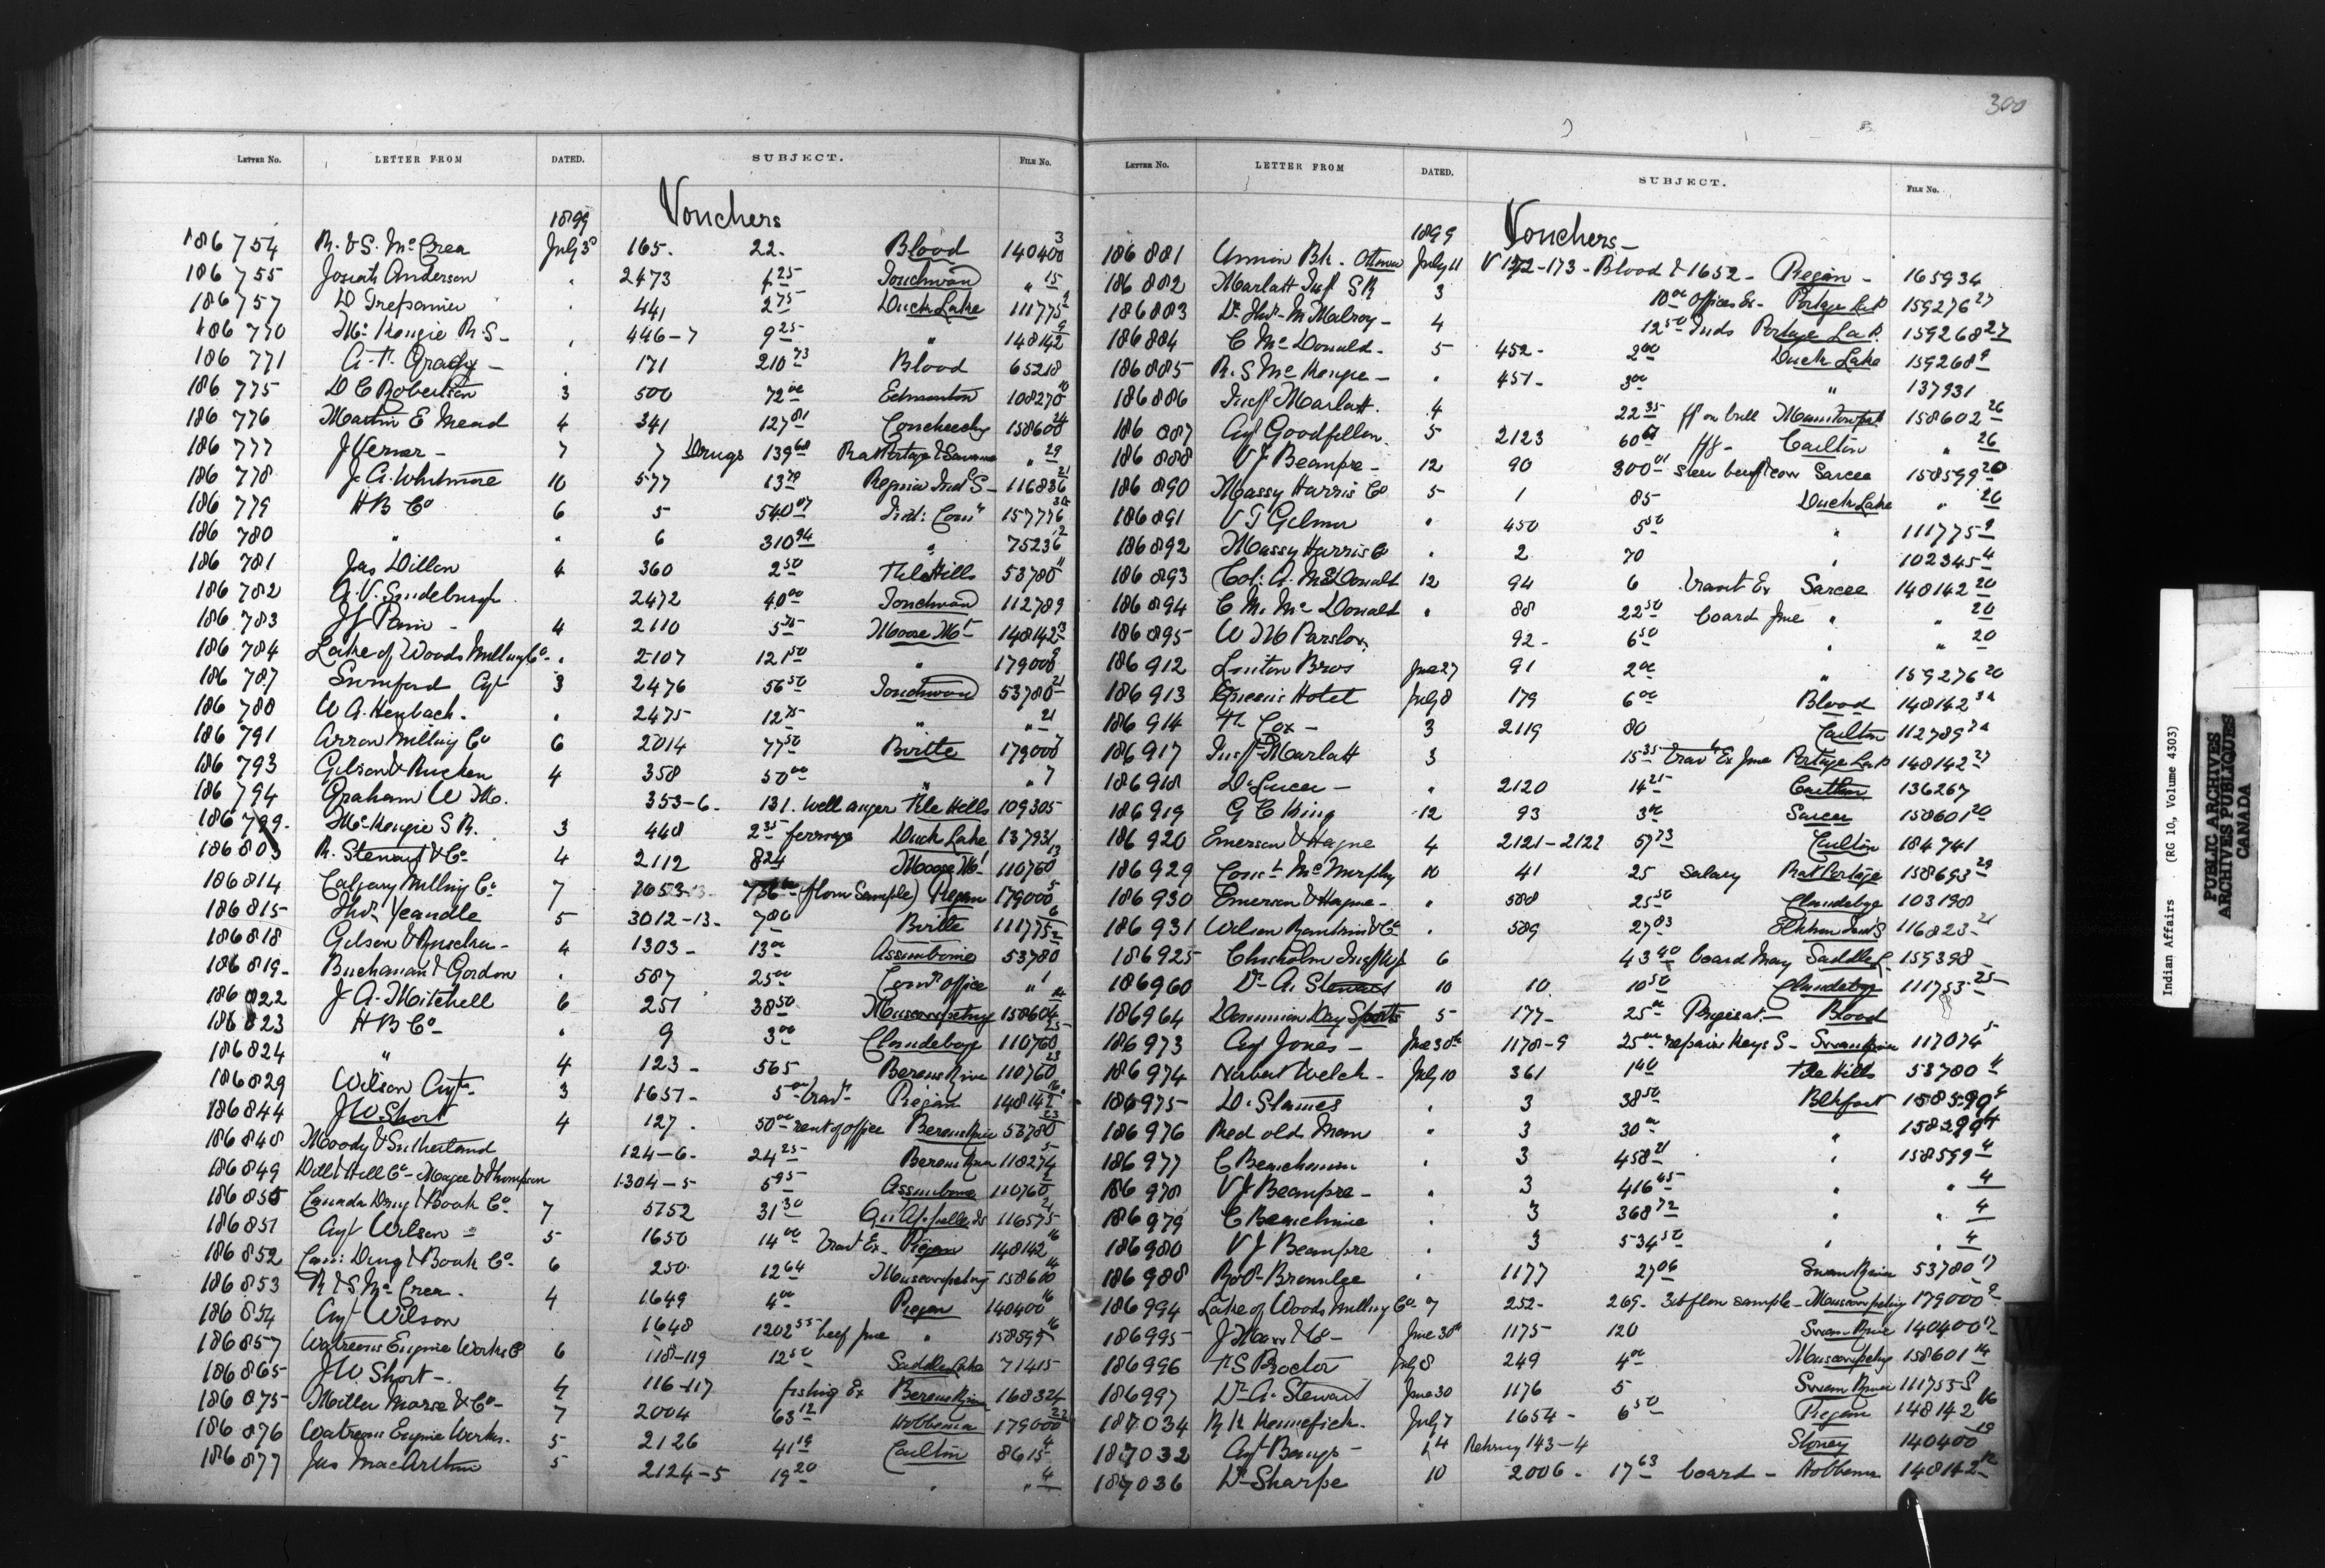 300
LETTER No. LETTER FROM DATED. SUBJECT. FILE No.
1899 Vouchers
186754 R. & S. McCrea July 3 165. 22. Blood 140400 3
186755 Josiah Anderson " 2473 25 Touchwood " 15
186757 441 2 75 Duck Lake 111775 9
186770 McKenzie R S - 446-7 9 25 " 148142 9
186771 A. P. Grady - 171 210 73 Blood 65218
186775 D C Robertson 3 500 72 00 Edmonton 108270 10
186776 Martin E Mead 4 341 127 81 158600 24
186777 J Verner - 7 7 Drugs 139 60 Rat Portage & Savanne " 29
186778 J. A. Whitmore 10 577 13 79 Regina Ind S - 116836 21
186779 H B Co 6 5 540 07 Ind: Comr 157776 30
186780 " " 6 310 94 " 75236 2
186781 Jas Dillon 4 360 2 50 File Hills 53780 11
186782 A. V. 2472 40 00 Touchwood 112789
186783 4 2110 5 75 Moose Mt 148142 13
186784 Lake of Woods Milling Co - " 2107 121 50 " 179000 9
186787 Swinford Agt 3 2476 56 50 Touchwood 53780 21
186788 W A. Heubach. " 2475 12 75 " " 21
186791 Arrow Milling Co 6 2014 77 50 Birtle 179000 7
186793 Gilson & 4 358 50 00 " " 7
186794 Graham W M. 353-6. 131. well auger File Hills 109305
186799. McKenzie S R. 3 448 2 35 ferriage Duck Lake 137931
186803 R. Stewart & Co 4 2112 824 Moose Mt 110760 13
186814 Calgary Milling Co 7 1053 756 (flour sample) Piegan 179000 5
186815 Thos Yeandle 5 3012-13- 7 80 Birtle 111775 6
186818 Gilson & 4 1303- 13 00 Assiniboine 53780 2
186819- Buchanan & Gordon " 587 25 00 Comrs office " 1
186822 J A. Mitchell 6 251 38 50 Muscowpetung 158604 14
186823 H B Co - " 9 3 00 Clandeboye 110760 25
186824 " 4 123- 565 Berens River 110760 23
186829 Wilson Agt - 3 1651- 5 00 trav - Piegan 148142 16
186844 J W Short 4 127. 50 00 rent of office Berens River 53780 23
186848 Moody & Sutherland 124-6. 24 25 Berens River 118274 5
186849 Magee & Thompson 1304-5 5 95 Assiniboine 110760 2
186850 Canada Drug & Book Co 7 5752 31 30 Qu'Appelle 116575 21
186851 Agt Wilson - 5 1650 14 00 Trav Ex. Piegan 148142 16
186852 Can: Drug & Book Co - 6 250 12 64 Muscowpetung 158600 14
186853 R & S. McCrea. 4 1649 4 00 Piegan 140400 16
186854 Agt Wilson 1648 1202 55 beef June " 158595 16
186857 Waterous Engine Works Co 6 118-119 12 50 Saddle Lake 71415
186865 J W. Short -. 4 116-117 fishing Ex Berens River 168324
186875 Miller Morse & Co - 7 2004 63 12 Hobbema 179000 22
186876 Waterous Engine Works. 5 2126 41 19 Carlton 8615 4
186877 Jas MacArthur 5 2124-5 19 20 " " 4
LETTER No. LETTER FROM DATED. SUBJECT. FILE No.
1899 Vouchers -
186881 Union Bk. Ottawa July 11 V 172-173 - Blood & 1652 - Piegan - 165934
186882 Marlatt Insp S R 3 10 00 Offices Ex - Portage La P 159276 27
186883 Dr Thos. M Malroy - 4 12 50 Inds Portage La P. 159268 27
186884 C McDonald. 5 452- 2 00 Duck Lake 159268 9
186885 R. S McKenzie - " 451- 3 00 " 137931
186886 Insp Marlatt. 4 22 35 ff on bull 158602 26
186887 Agt Goodfellow. 5 2123 60 ff - Carlton " 26
186888 V J Beaupre - 12 90 300 01 Sarcee 158599 20
186890 Massy Harris Co 5 1 85 Duck Lake " 26
186891 V T Gilmer " 450 5 50 " 111775 9
186892 Massy Harris Co " 2 70 " 102345 4
186893 Col: A. McDonald 12 94 6 travt Ex Sarcee 148142 20
186894 C M. McDonald " 88 22 50 board June " " 20
186895 W M Parslow 92- 6 50 " " 20
186912 Linton Bros June 27 91 2 00 " 159276 20
186913 Queens Hotel July 8 179 6 00 Blood 148142 3a
186914 Cox - 3 2119 80 Carlton 112789
186917 Insp Marlatt 3 15 35 trav Ex June Portage La P 148142 27
186918 " 2120 14 25 Carlton 136267
186919 G C King 12 93 3 00 Sarcee 158601 20
186920 Emerson & Hague 4 2121-2122 57 73 Carlton 184741
186929 Const McMurphy 10 41 25 Salary Rat Portage 158693 29
186930 Emerson & Hague - " 588 25 50 Clandeboye 103198
186931 Wilson & Co " 589 27 83 Elkhorn Ind S 116823 21
186925 Chisholm Insp 6 43 40 board May Saddle L. 159398
186960 Dr A. Stewart 10 10 10 50 Clandeboye 111753 25
186964 Dominion Day Sports 5 177- 25 00 - Blood
186973 Agt Jones - June 30th 1178-9 25 00 repairs Keys S - Swan River 117074 5
186974 Norbert Welch - July 10 361 1 40 File Hills 53780 11
186975 D. Stames " 3 38 50 Blkfoot 158599 4
186976 Red old Man " 3 30 00 " 158299 4
186977 C " 3 458 21 " 158599 4
186978 V J Beaupre - " 3 416 45 " " 4
186979 C " 3 368 72 " " 4
186980 V J Beaupre " 3 534 50 " " 4
186988 Robt " 1177 27 06 Swan River 53780 17
186994 Lake of Woods Milling Co 7 252- 269- flour sample - Muscowpetung 179000 9
186995 June 30th 1175 120 Swan River 140400 17
186996 F S Proctor July 8 249 4 00 Muscowpetung 158601 14
186997 Dr A. Stewart June 30 1176 5 Swan River 111755 8
187034 R K Kennefick. July 7 1654- 6 50 Piegan 148142 16
187032 Agt Bangs - 4 143-4 Stoney 140400 19
187036 Dr Sharpe 10 2006- 17 63 board - Hobbema 148142 12
Indian Affairs (RG 10, Volume 4303)
PUBLIC ARCHIVES
ARCHIVES PUBLIQUES
CANADA